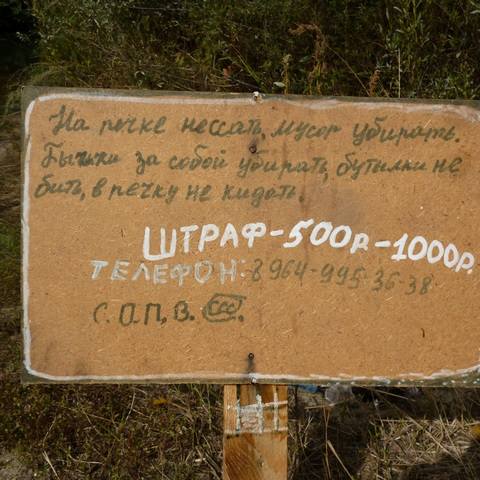 На речке нессать, мусор убирать.
Бычки за собой убирать, бутылки не
бить, в речку не кидать.
ШТРАФ-500р-1000р.
ТЕЛЕФОН: 8964-995-36-38
С.О.П.В. ССС.